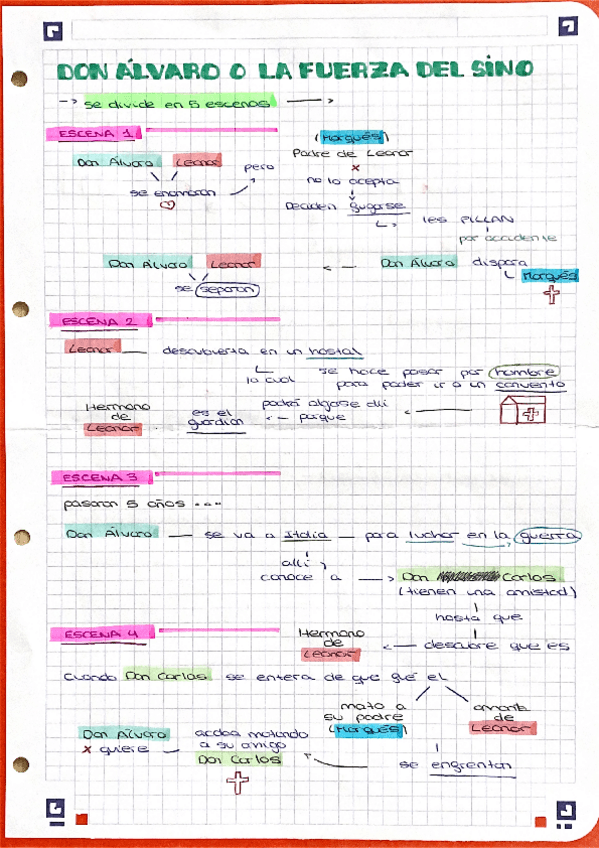 DON ÁLVARO O LA FUERZA DEL SINO
-> se divide en 5 escenas ->
ESCENA 1
(Marqués)
Don Álvaro Leonor pero Padre de Leonor
x
se enamoran no lo acepta
Deciden fugarse
les PILLAN
por accidente
Don Álvaro Leonor <- Don Álvaro dispara
Marqués
se separan
ESCENA 2
Leonor descubierta en un hostal
lo cual se hace pasar por hombre
para poder ir a un convento
Hermano de Leonor es el guardian <-- porque podrá alojarse allí
ESCENA 3
pasaron 5 años ...
Don Álvaro — se va a Italia — para luchar en la guerra
allí
conoce a -> Don Carlos
(tienen una amistad)
hasta que
ESCENA 4
Hermano de Leonor <- descubre que es
Cuando Don Carlos se entera de que fue el
mato a su padre (Marqués)
amante de Leonor
se enfrentan
Don Álvaro x quiere — acaba matando a su amigo Don Carlos